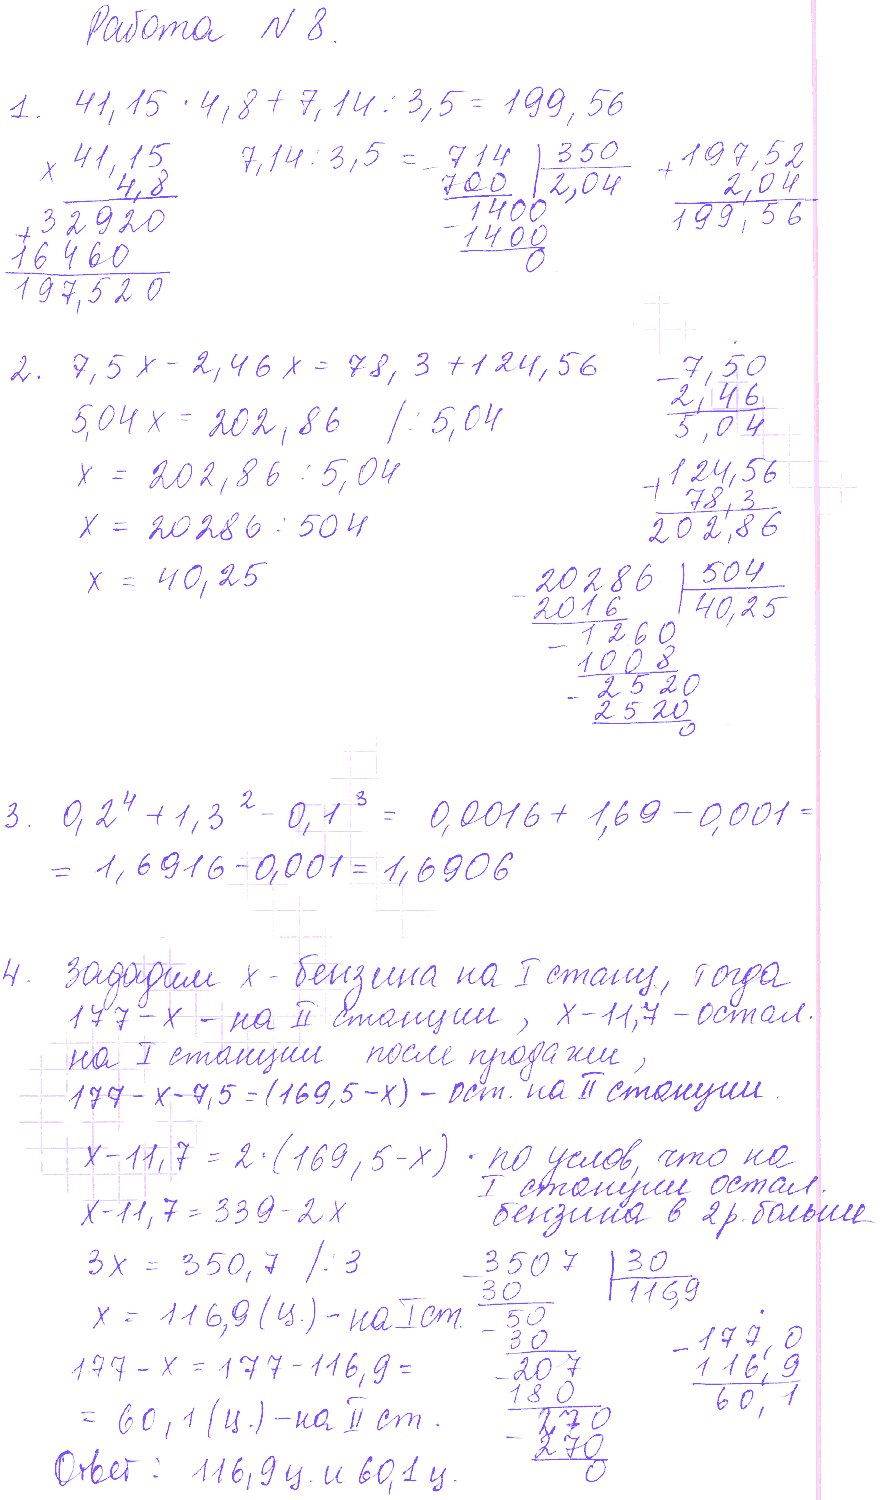 Работа N 8.
1. 41,15 · 4,8 + 7,14 : 3,5 = 199,56
× 41,15
4,8
+ 32920
16460
197,520
7,14 : 3,5 =
- 714 | 350
700 | 2,04
- 1400
1400
0
+ 197,52
2,04
199,56
2. 7,5 x - 2,46 x = 78,3 + 124,56
5,04 x = 202,86 /: 5,04
x = 202,86 : 5,04
x = 20286 : 504
x = 40,25
- 7,50
2,46
5,04
+ 124,56
78,3
202,86
- 20286 | 504
2016 | 40,25
- 1260
1008
- 2520
2520
0
3. 0,2⁴ + 1,3² - 0,1³ = 0,0016 + 1,69 - 0,001 =
= 1,6916 - 0,001 = 1,6906
4. Зададим x - бензина на I станц, тогда
177 - x - на II станции, x - 11,7 - остал.
на I станции после продажи,
177 - x - 7,5 = (169,5 - x) - ост. на II станции.
x - 11,7 = 2 · (169,5 - x) - по услов, что на
I станции остал.
бензина в 2 р. больше
x - 11,7 = 339 - 2x
3x = 350,7 /: 3
x = 116,9 (ц.) - на I ст.
177 - x = 177 - 116,9 =
= 60,1 (ц.) - на II ст.
- 3507 | 30
30 | 116,9
- 50
30
- 207
180
- 270
270
0
- 177,0
116,9
60,1
Ответ: 116,9 ц. и 60,1 ц.